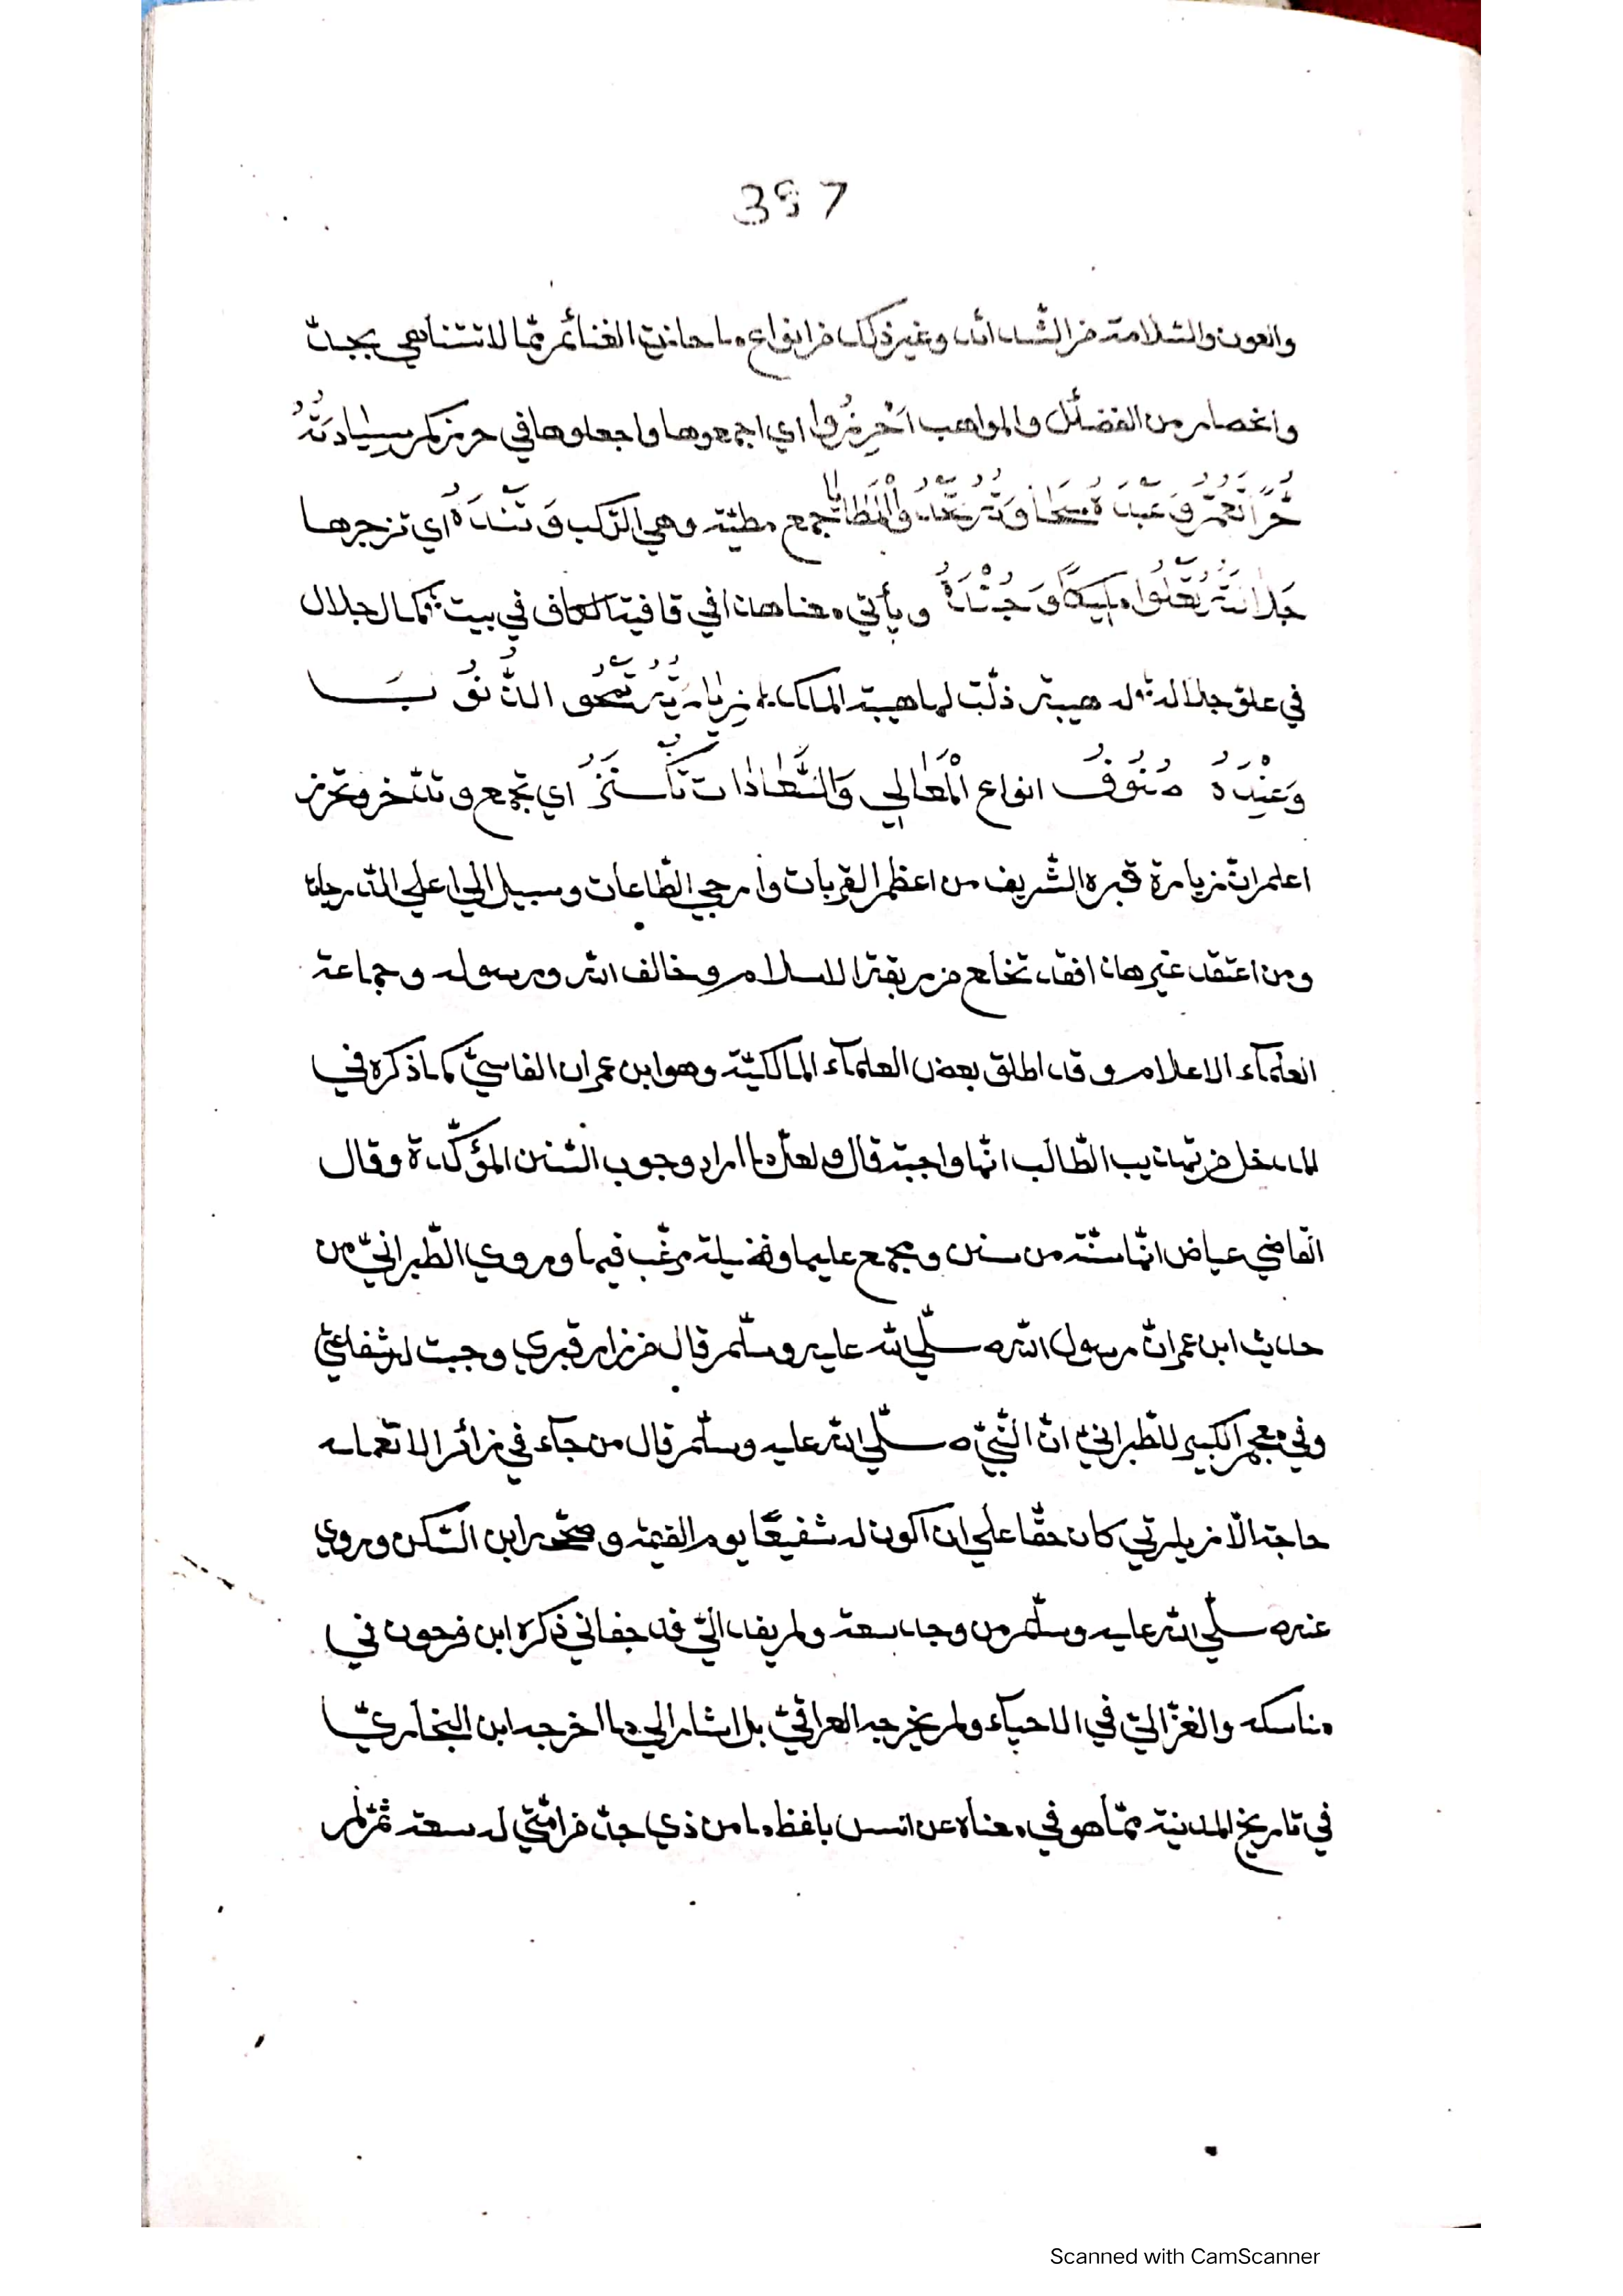 397
والعون والسّلامة من الشّدائد وغير ذلك من انواع ما حازت الغنائم ممّا لا تتناهي بحدّ
وانحصار من الفضآئل والمواهب اَحْرِزُوا اي اجمعوها واجعلوها في حرزكم
جمع مطيّة وهي الرّكب اي تزجرها
ويأتي معنا هذا في قافية الكاف في بيت كمال جلال
في علوّ جلاله له هيبة ذلّت لها هيبة الملك
وَعِنْدَهُ صُنُوفُ انواع الْمَعَالِي وَالسَّعَادَات تُكْتَنَزُ اي تجمع وتدّخر وتحرز
اعلم انّ زيارة قبره الشّريف من اعظم القربات وأرجي الطّاعات وسبيل الي اعلي الدّرجات
ومن اعتقد غير هذا فقد تخلع من ربقة الاسلام وخالف اللّه ورسوله وجماعة
العلمآء الاعلام وقد اطلق بعض العلمآء المالكيّة وهو ابن عمران الفاسيّ كما ذكره في
المدخل من تهذيب الطّالب انّها واجبة قال ولعلّه اراد وجوب السّنن المؤكّدة وقال
القاضي عياض انّها سنّة من سنن ومجمع عليها وفضيلة مرغّب فيها وروي الطّبرانيّ من
حديث ابن عمر انّ رسول اللّه صلّي اللّه عليه وسلّم قال من زار قبري وجبت له شفاعتي
وفي معجم الكبير للطّبرانيّ انّ النّبيّ صلّي اللّه عليه وسلّم قال من جآء في زائر الا تعمله
حاجة الّا زيارتي كان حقّا علي ان اكون له شفيعًا يوم القيمة وصحّحه ابن السّكن وروي
عنه صلّي اللّه عليه وسلّم من وجد سعة ولم يفد اليّ فقد جفاني ذكره ابن فرحون في
مناسكه والغزّاليّ في الاحيآء ولم يخرجه العراقيّ بل اشار الي ما اخرجه ابن البخاريّ
في تاريخ المدينة ممّا هو في معناه عن انس بلفظ ما من ذي جدّ من امّتي له سعة ثمّ لم
Scanned with CamScanner